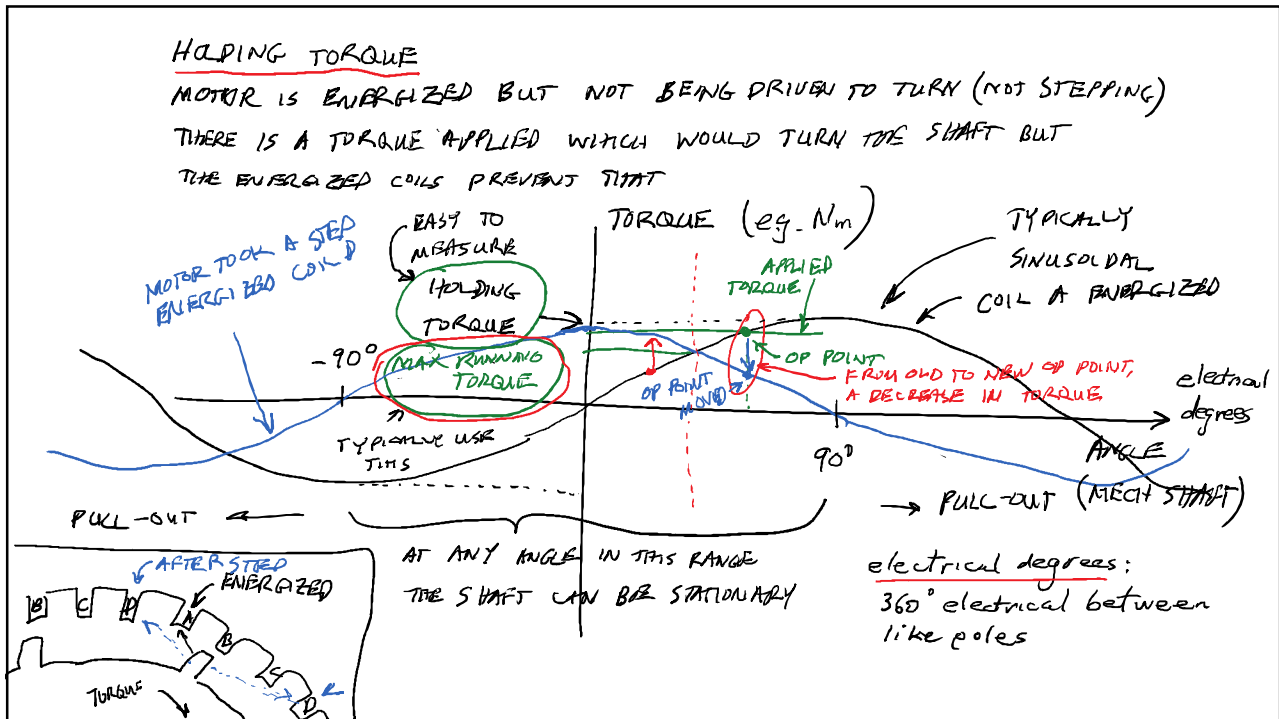 HOLDING TORQUE
MOTOR IS ENERGIZED BUT NOT BEING DRIVEN TO TURN (NOT STEPPING)
THERE IS A TORQUE APPLIED WHICH WOULD TURN THE SHAFT BUT
THE ENERGIZED COILS PREVENT THAT
MOTOR TOOK A STEP
ENERGIZED COIL D
EASY TO
MEASURE
HOLDING
TORQUE
MAX RUNNING
TORQUE
TYPICALLY USE
THIS
-90°
TORQUE (eg. Nm)
APPLIED
TORQUE
TYPICALLY
SINUSOIDAL
COIL A ENERGIZED
OP POINT
OP POINT
MOVED
FROM OLD TO NEW OP POINT,
A DECREASE IN TORQUE
electrical
degrees
90°
ANGLE
(MECH SHAFT)
PULL-OUT
PULL-OUT
AT ANY ANGLE IN THIS RANGE
THE SHAFT CAN BE STATIONARY
electrical degrees:
360° electrical between
like poles
AFTER STEP
ENERGIZED
B C D A B C D
TORQUE